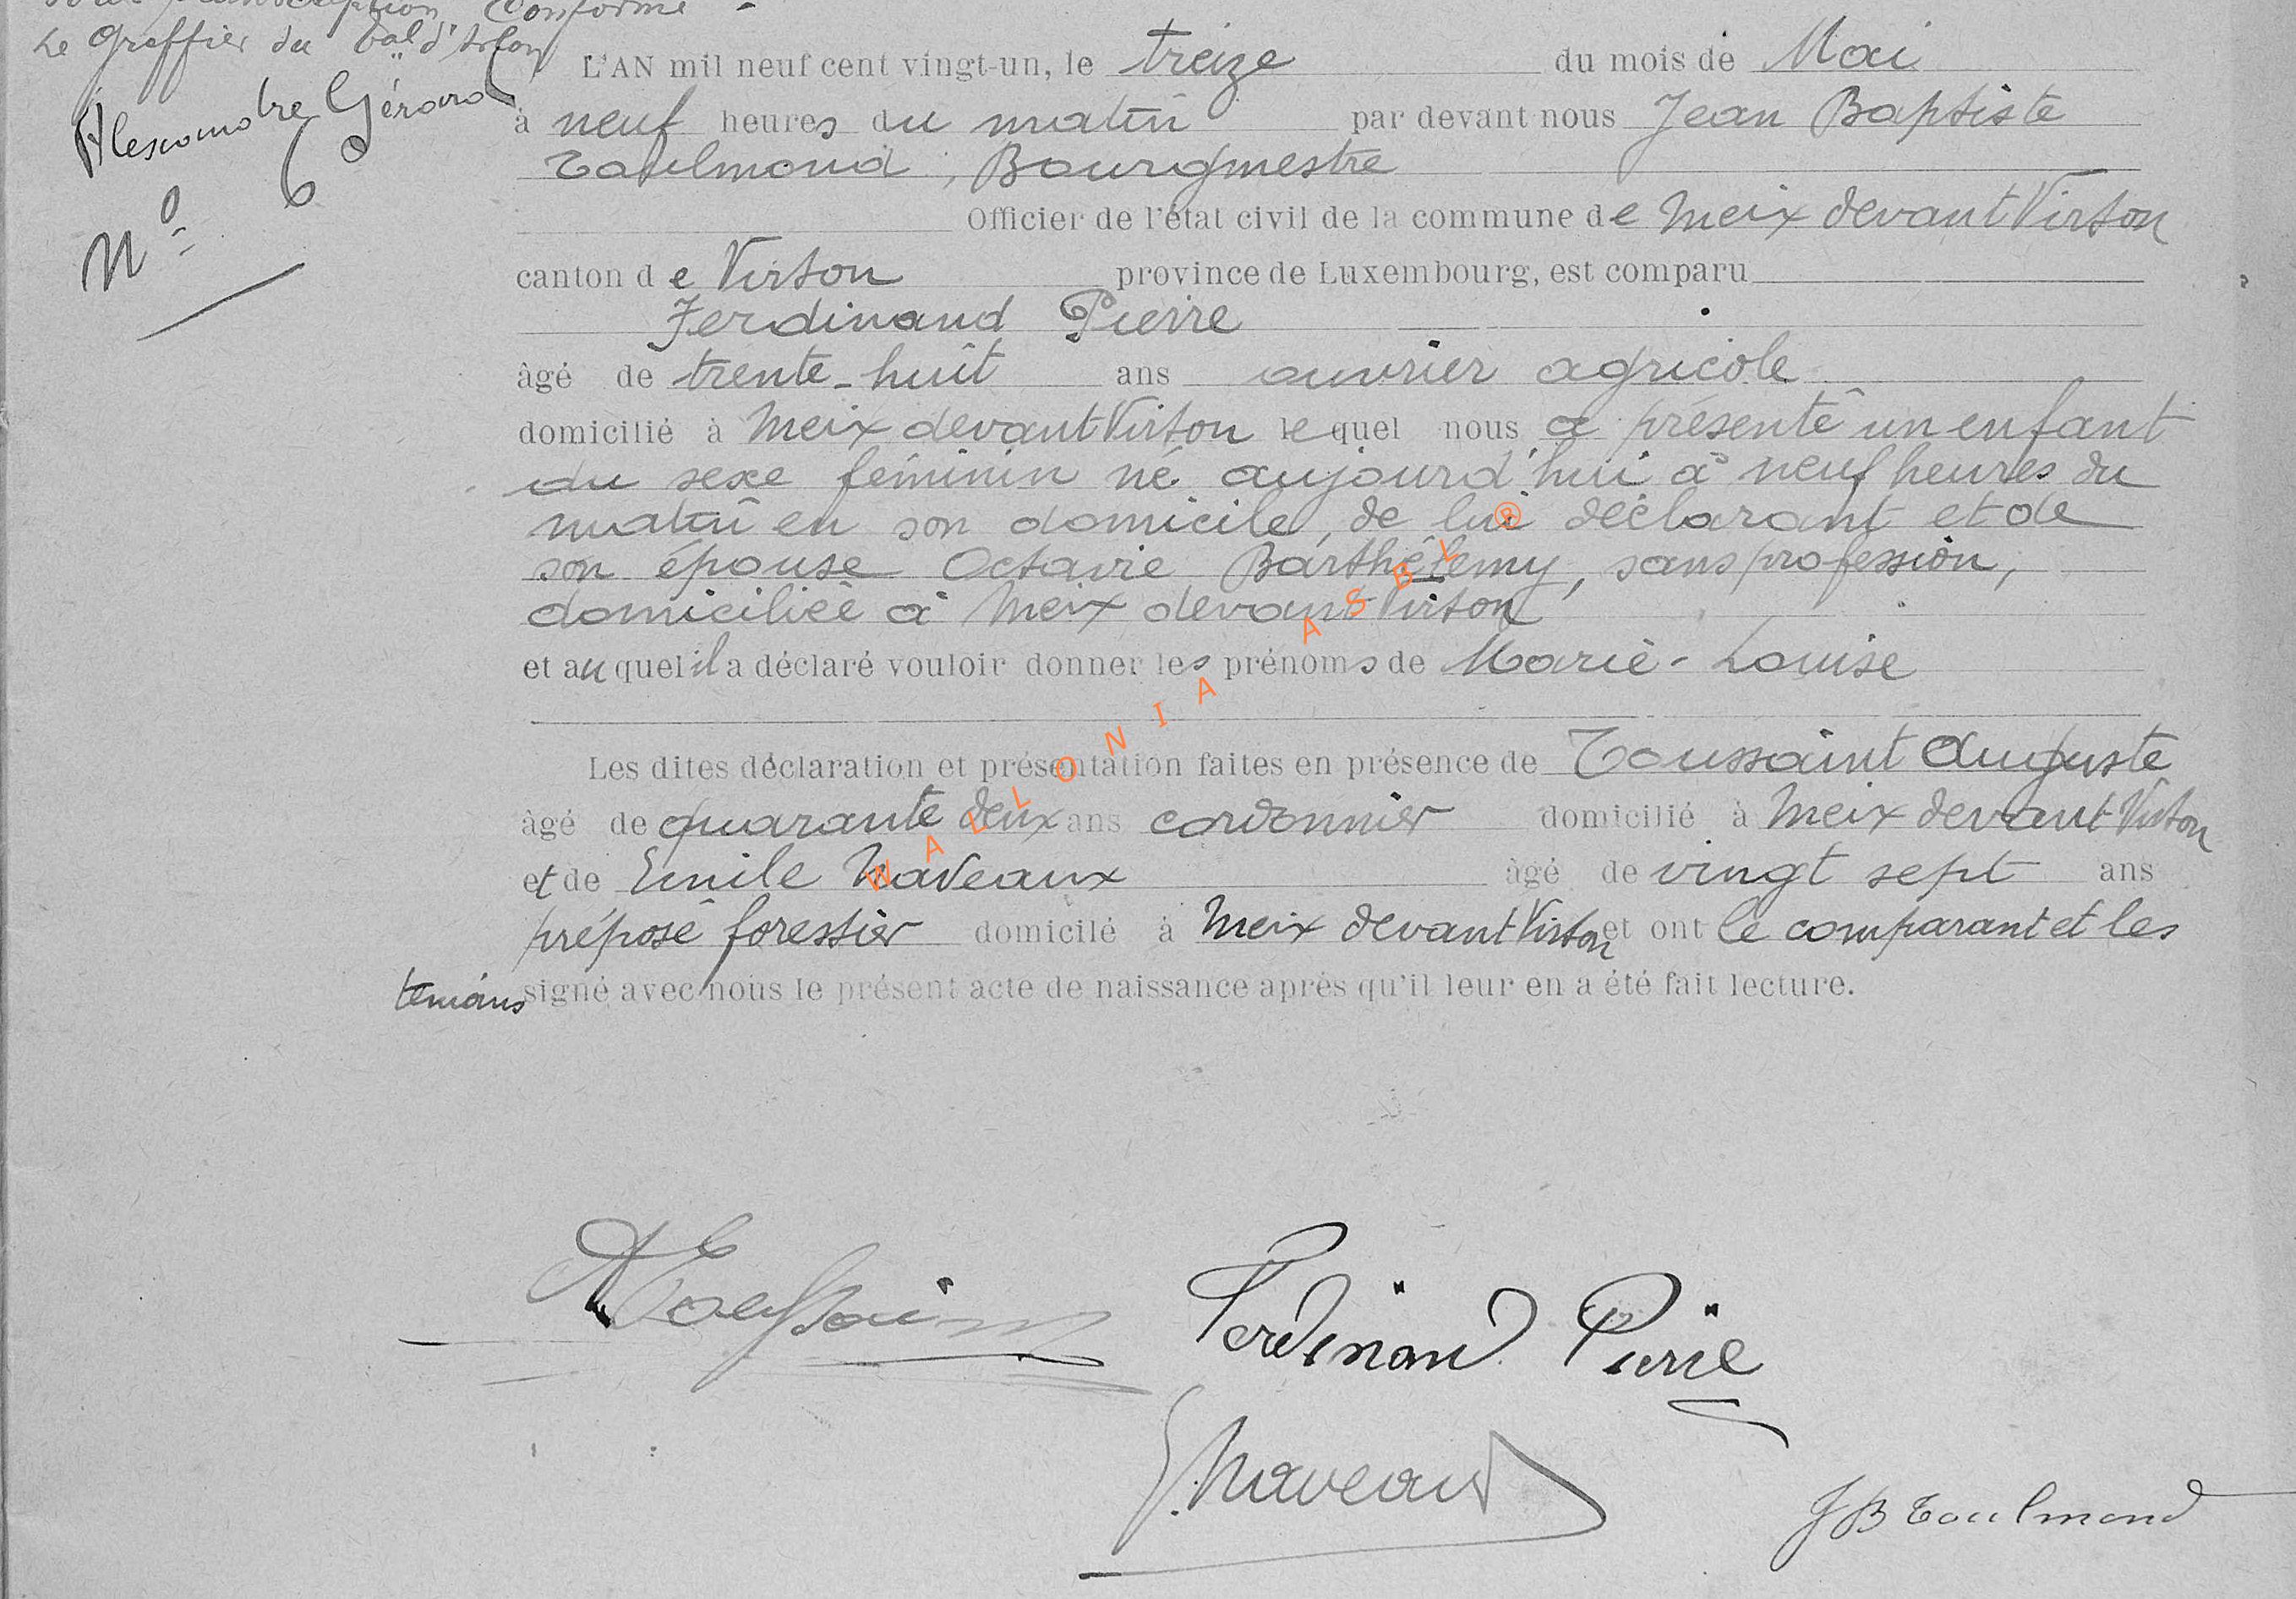 transcription conforme -
Le Greffier du
Alexandre Gérard
N° 6
L'AN mil neuf cent vingt-un, le treize du mois de Mai
à neuf heures du matin par devant nous Jean Baptiste
Toulmond, Bourgmestre
Officier de l'état civil de la commune de Meix devant Virton
canton de Virton province de Luxembourg, est comparu
Ferdinand Pierre
âgé de trente-huit ans ouvrier agricole
domicilié à Meix devant Virton lequel nous a présenté un enfant
du sexe féminin né aujourd'hui à neuf heures du
matin en son domicile, de lui déclarant et de
son épouse Octavie Barthélemy, sans profession,
domiciliée à Meix devant Virton
et auquel il a déclaré vouloir donner les prénoms de Marie-Louise
Les dites déclaration et présentation faites en présence de Toussaint Auguste
âgé de quarante deux ans cordonnier domicilié à Meix devant Virton
et de Emile Naveaux âgé de vingt sept ans
préposé forestier domicilé à Meix devant Virton et ont le comparant et les
témoins signé avec nous le présent acte de naissance après qu'il leur en a été fait lecture.
WALLONIA ASBL ®
A Toussaint
Ferdinand Pierre
E. Naveaux
JB Toulmond